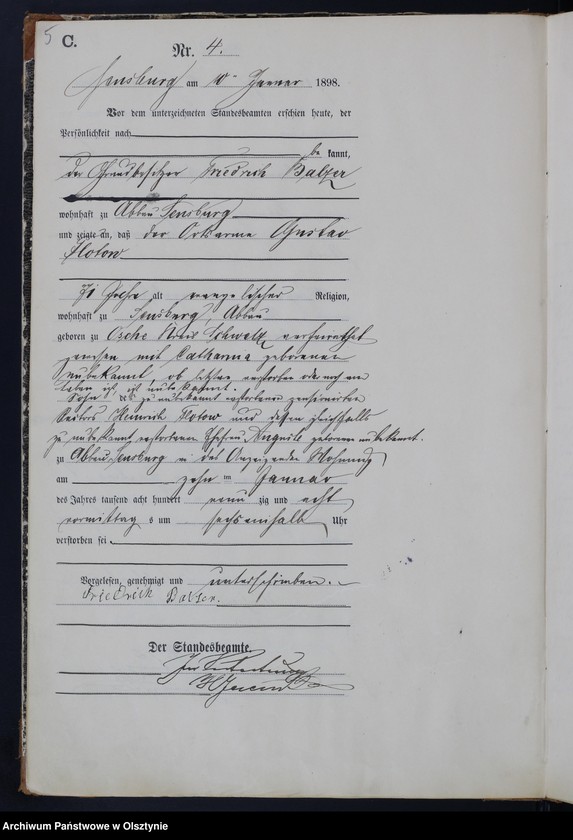 5
C.
Nr. 4.
Sensburg am 10ten Januar 1898.
Vor dem unterzeichneten Standesbeamten erschien heute, der
Persönlichkeit nach
be kannt,
der Grundbesitzer Friedrich Balzer
wohnhaft zu Abbau Sensburg
und zeigte an, daß der Ortsarme Gustav
Flotow
71 Jahre alt evangelischer Religion,
wohnhaft zu Sensburg Abbau
geboren zu Osche Kreis Schwetz verheirathet
gewesen mit Catharina geborenen
unbekannt ob letztere verstorben oder noch am
Leben ist, ist unbekannt.
Sohn des zu unbekannt verstorbenen pensionirten
Heinrich Flotow und dessen gleichfalls
zu unbekannt verstorbenen Ehefrau Auguste geborenen unbekannt.
zu Abbau Sensburg in des Anzeigenden Wohnung
am zehn ten Januar
des Jahres tausend acht hundert neun zig und acht
vormittag s um sechseinhalb Uhr
verstorben sei.
Vorgelesen, genehmigt und unterschrieben.
Friedrich Balzer.
Der Standesbeamte.
In Vertretung
Archiwum Państwowe w Olsztynie